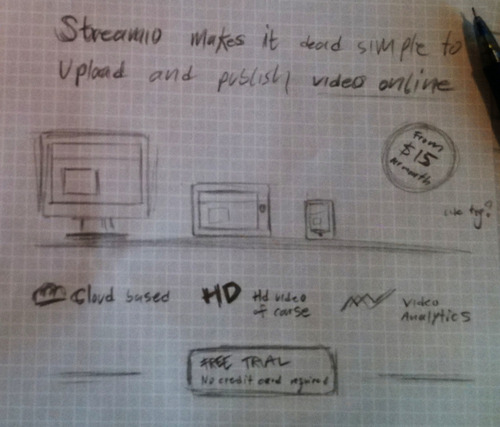 Streamio makes it dead simple to
Upload and publish video online
From
$15
month
Cloud based
HD
Hd video
of course
Video
Analytics
FREE TRIAL
No credit card required